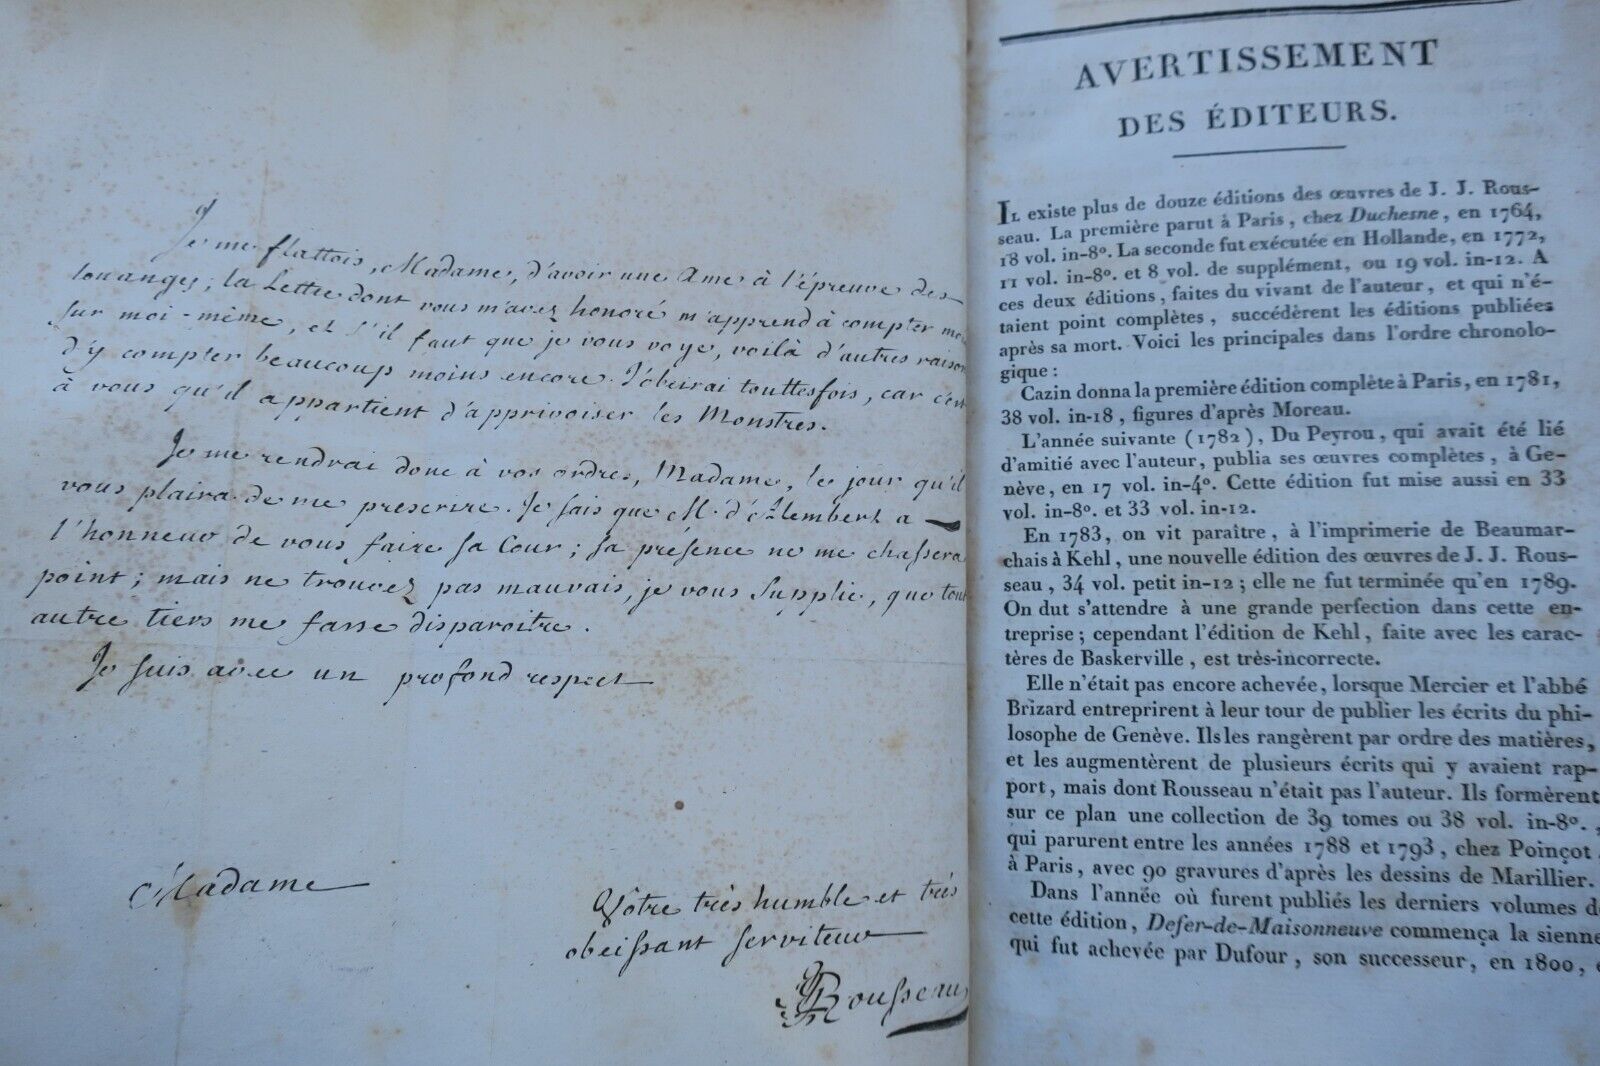 Je me flattois, Madame, d'avoir une Ame à l'épreuve des
louanges; la Lettre dont vous m'avez honoré m'apprend à compter moins
sur moi-même, et s'il faut que je vous voye, voilà d'autres raisons
d'y compter beaucoup moins encore. J'obeirai touttesfois, car c'est
à vous qu'il appartient d'apprivoiser les Monstres.
Je me rendrai donc à vos ordres, Madame, le jour qu'il
vous plaira de me prescrire. Je sais que M. d'Alembert a
l'honneur de vous faire sa Cour; sa présence ne me chassera
point; mais ne trouvez pas mauvais, je vous supplie, que tout
autre tiers me fasse disparoitre.
Je suis avec un profond respect
Madame
Vôtre très humble et très
obeissant serviteur
JJRousseau
AVERTISSEMENT
DES ÉDITEURS.
IL existe plus de douze éditions des œuvres de J. J. Rous-
seau. La première parut à Paris, chez Duchesne, en 1764,
18 vol. in-8º. La seconde fut exécutée en Hollande, en 1772,
11 vol. in-8º. et 8 vol. de supplément, ou 19 vol. in-12. A
ces deux éditions, faites du vivant de l'auteur, et qui n'é-
taient point complètes, succédèrent les éditions publiées
après sa mort. Voici les principales dans l'ordre chronolo-
gique :
Cazin donna la première édition complète à Paris, en 1781,
38 vol. in-18, figures d'après Moreau.
L'année suivante (1782), Du Peyrou, qui avait été lié
d'amitié avec l'auteur, publia ses œuvres complètes, à Ge-
nève, en 17 vol. in-4º. Cette édition fut mise aussi en 33
vol. in-8º. et 33 vol. in-12.
En 1783, on vit paraître, à l'imprimerie de Beaumar-
chais à Kehl, une nouvelle édition des œuvres de J. J. Rous-
seau, 34 vol. petit in-12; elle ne fut terminée qu'en 1789.
On dut s'attendre à une grande perfection dans cette en-
treprise; cependant l'édition de Kehl, faite avec les carac-
tères de Baskerville, est très-incorrecte.
Elle n'était pas encore achevée, lorsque Mercier et l'abbé
Brizard entreprirent à leur tour de publier les écrits du phi-
losophe de Genève. Ils les rangèrent par ordre des matières,
et les augmentèrent de plusieurs écrits qui y avaient rap-
port, mais dont Rousseau n'était pas l'auteur. Ils formèrent
sur ce plan une collection de 39 tomes ou 38 vol. in-8º.,
qui parurent entre les années 1788 et 1793, chez Poinçot
à Paris, avec 90 gravures d'après les dessins de Marillier.
Dans l'année où furent publiés les derniers volumes de
cette édition, Defer-de-Maisonneuve commença la sienne
qui fut achevée par Dufour, son successeur, en 1800,